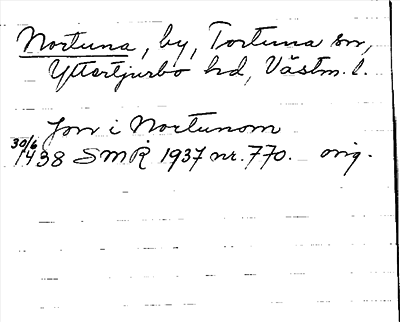 Nortuna, by, Tortuna sn,
Yttertjurbo hd, Västm. l.
Jon i Nortunom
30/6 1438 SMR 1937 nr. 770. orig.